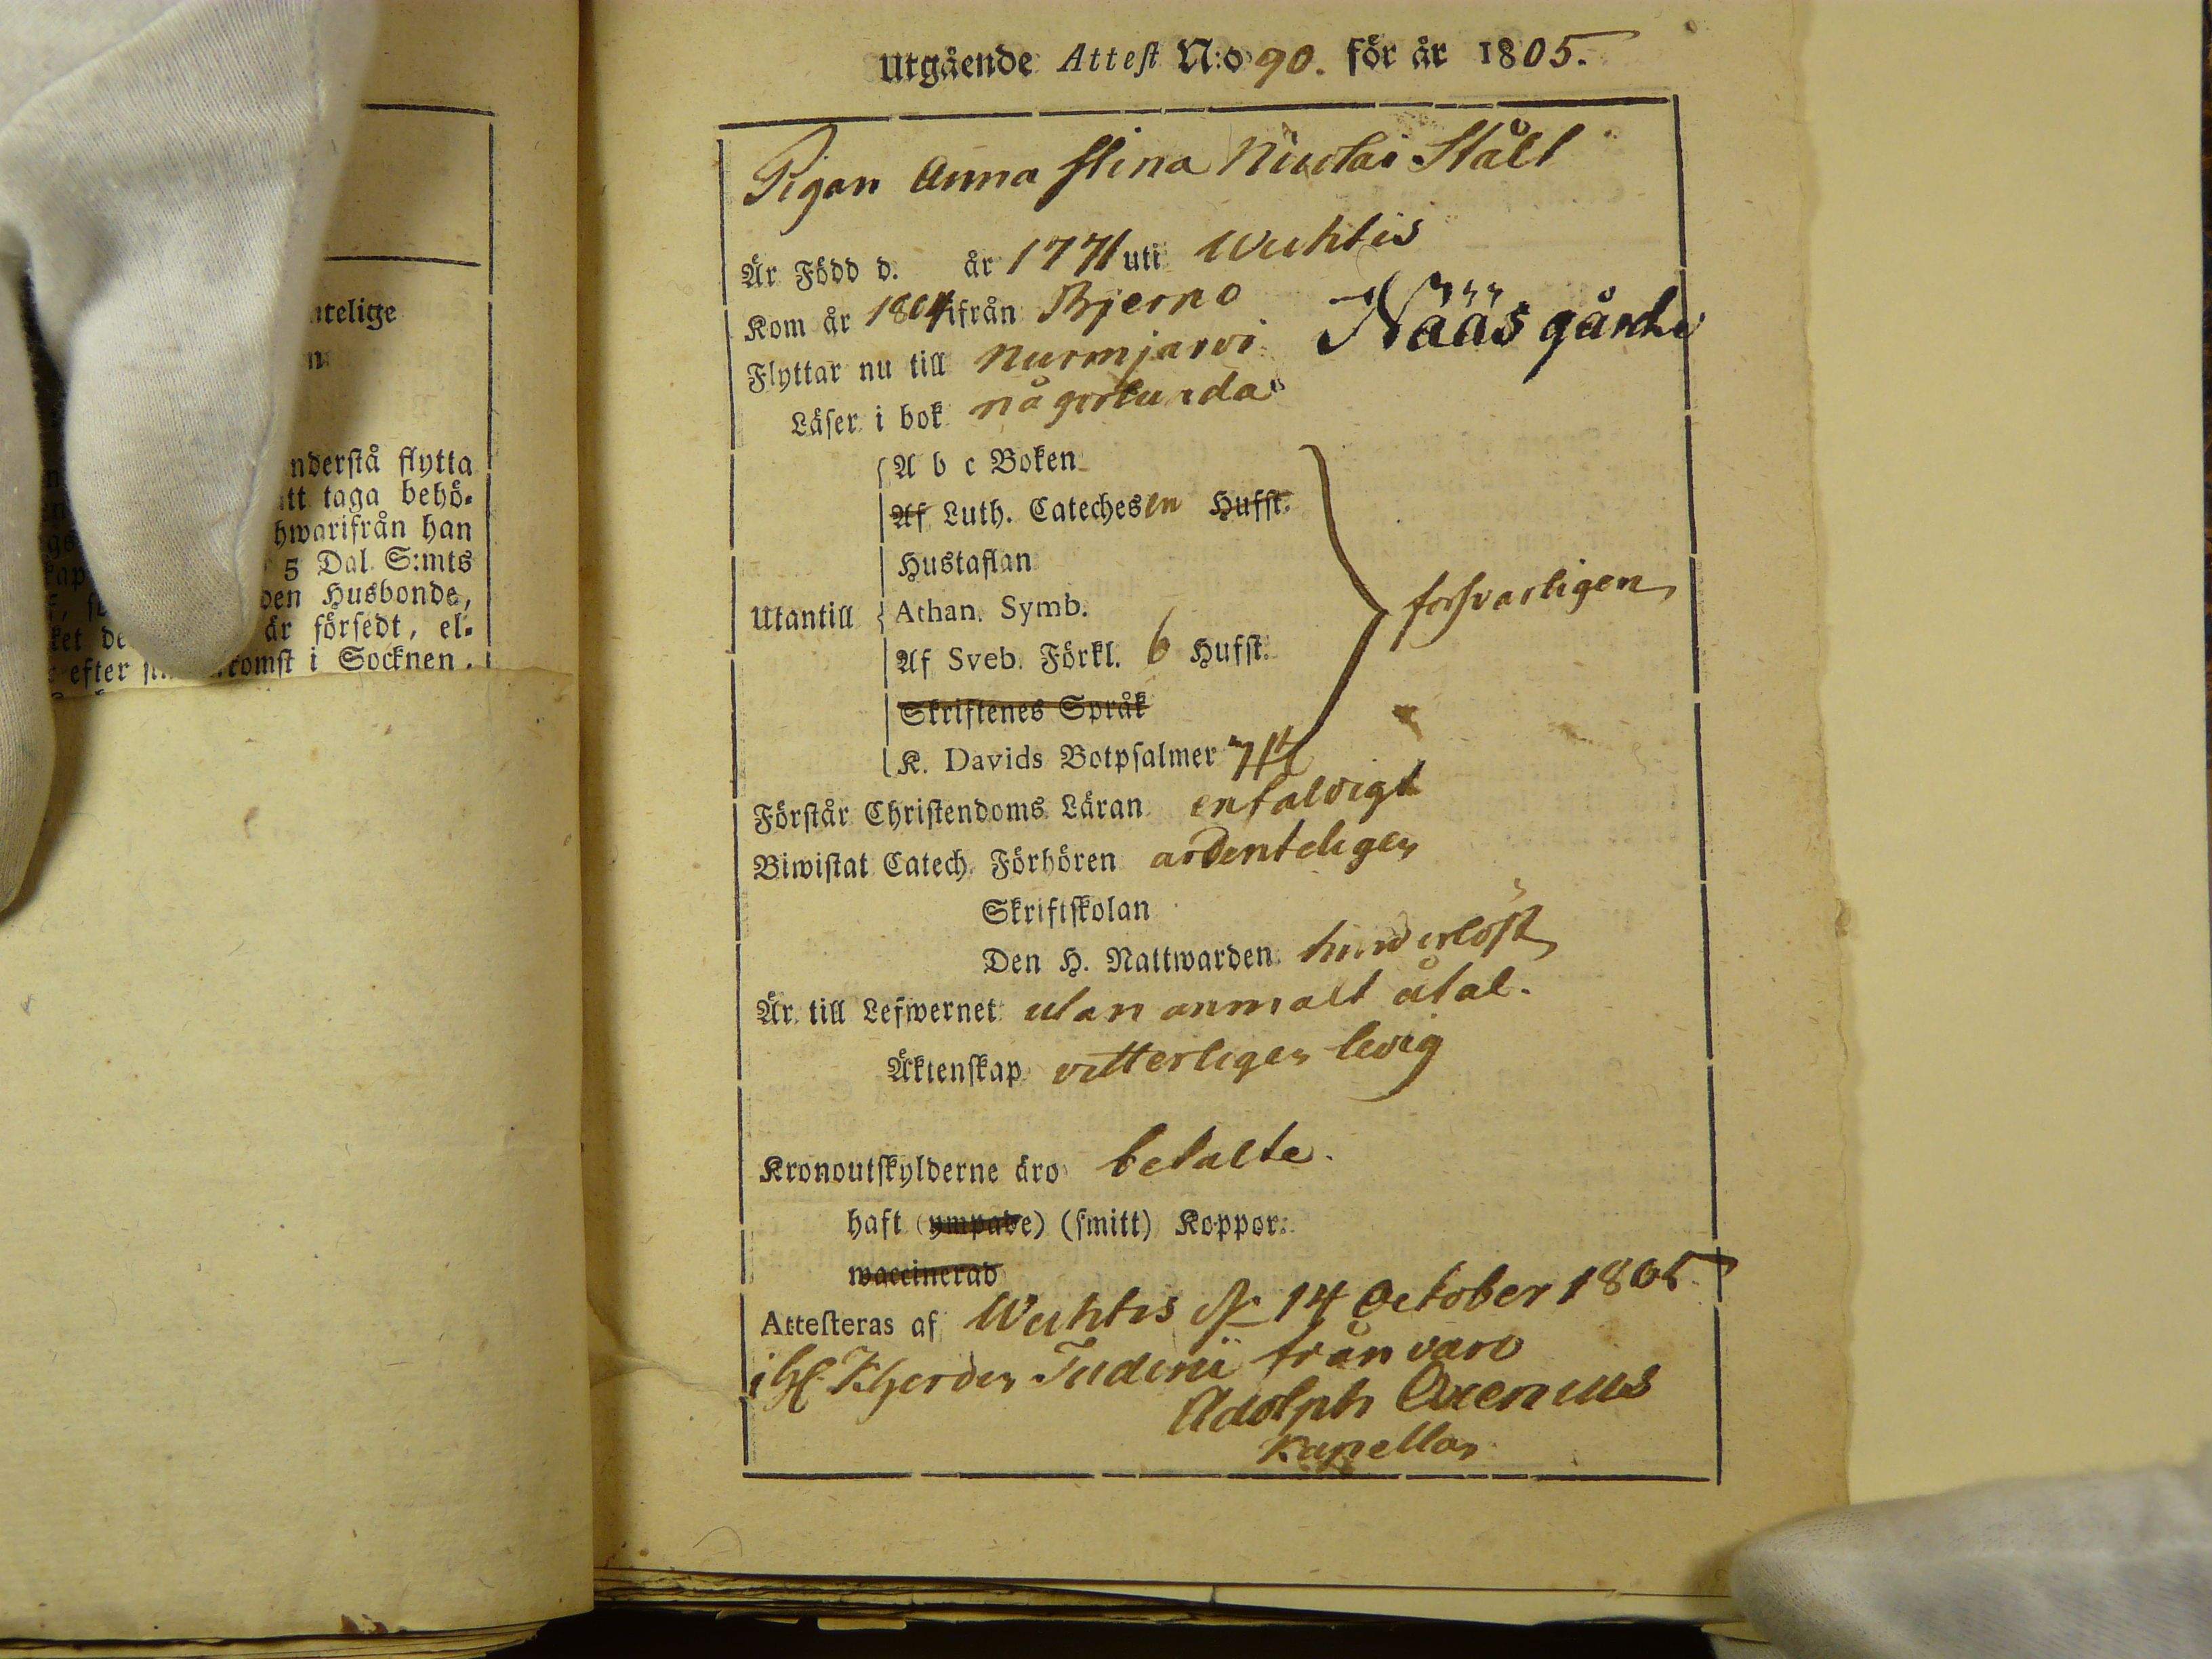 ntelige
n
nderstå flytta
att taga behö-
hwarifrån han
5 Dal. S:mts
den Husbonde,
är försedt, el-
efter komst i Socknen.
Utgående Attest N:o 90. för år 1805.
Pigan Anna Stina Nicolai Ståll
Är Född d. år 1771 uti Wichtis
Kom år 1804 ifrån Bjerno
Flyttar nu till Nurmjarvi Nääs gård
Läser i bok någorlunda
A b c Boken
Af Luth. Catechesen Hufst.
Hustaflan
Utantill Athan. Symb. forsvarligen
Af Sveb. Förkl. 6 Hufst.
Skriftenes Språk
K. Davids Botpsalmer 7 st
Förstår Christendoms Läran enfaldigt
Biwistat Catech. Förhören ordenteligen
Skriftskolan
Den H. Nattwarden hinderlöst
Är till Lefwernet utan anmält åtal.
Äktenskap vitterligen ledig
Kronoutskylderne äro betalte.
haft (ympade) (smitt) Koppor.
waccinerad
Attesteras af Wichtis d. 14 October 1805
i frånvaro
Adolph Oxenius
Kapellan